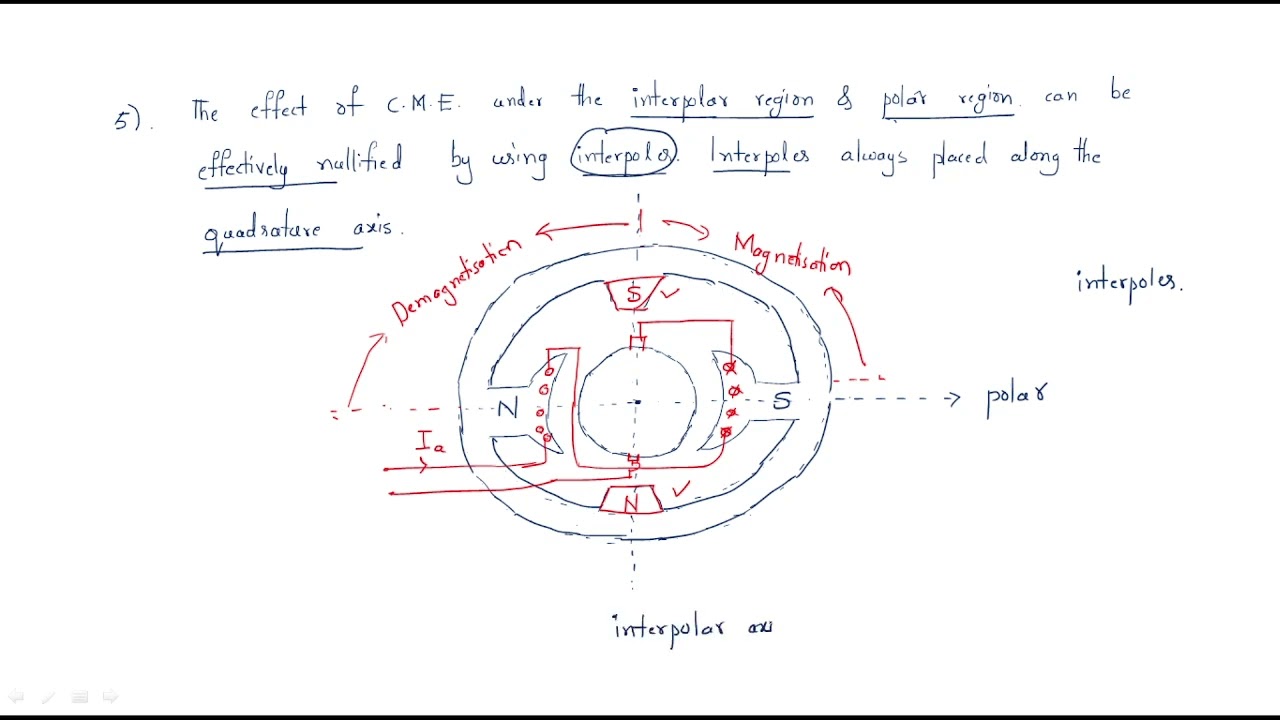 5). The effect of C.M.E. under the interpolar region & polar region can be
effectively nullified by using interpoles. Interpoles always placed along the
quadrature axis.
Demagnetisation
Magnetisation
interpoles.
S
N
S
polar
Ia
N
interpolar axi